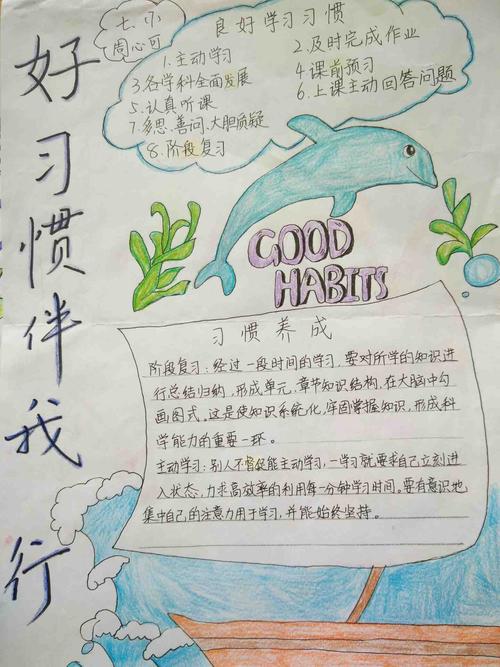 好习惯伴我行
七.(7)
周心可
良好学习习惯
1.主动学习
2.及时完成作业
3.各学科全面发展
4.课前预习
5.认真听课
6.上课主动回答问题
7.多思、善问、大胆质疑
8.阶段复习
GOOD
HABITS
习惯养成
阶段复习:经过一段时间的学习,要对所学的知识进
行总结归纳,形成单元、章节知识结构,在大脑中勾
画图式。这是使知识系统化,牢固掌握知识,形成科
学能力的重要一环。
主动学习:别人不督促能主动学习,一学习就要求自己立刻进
入状态,力求高效率的利用每一分钟学习时间。要有意识地
集中自己的注意力用于学习,并能始终坚持。